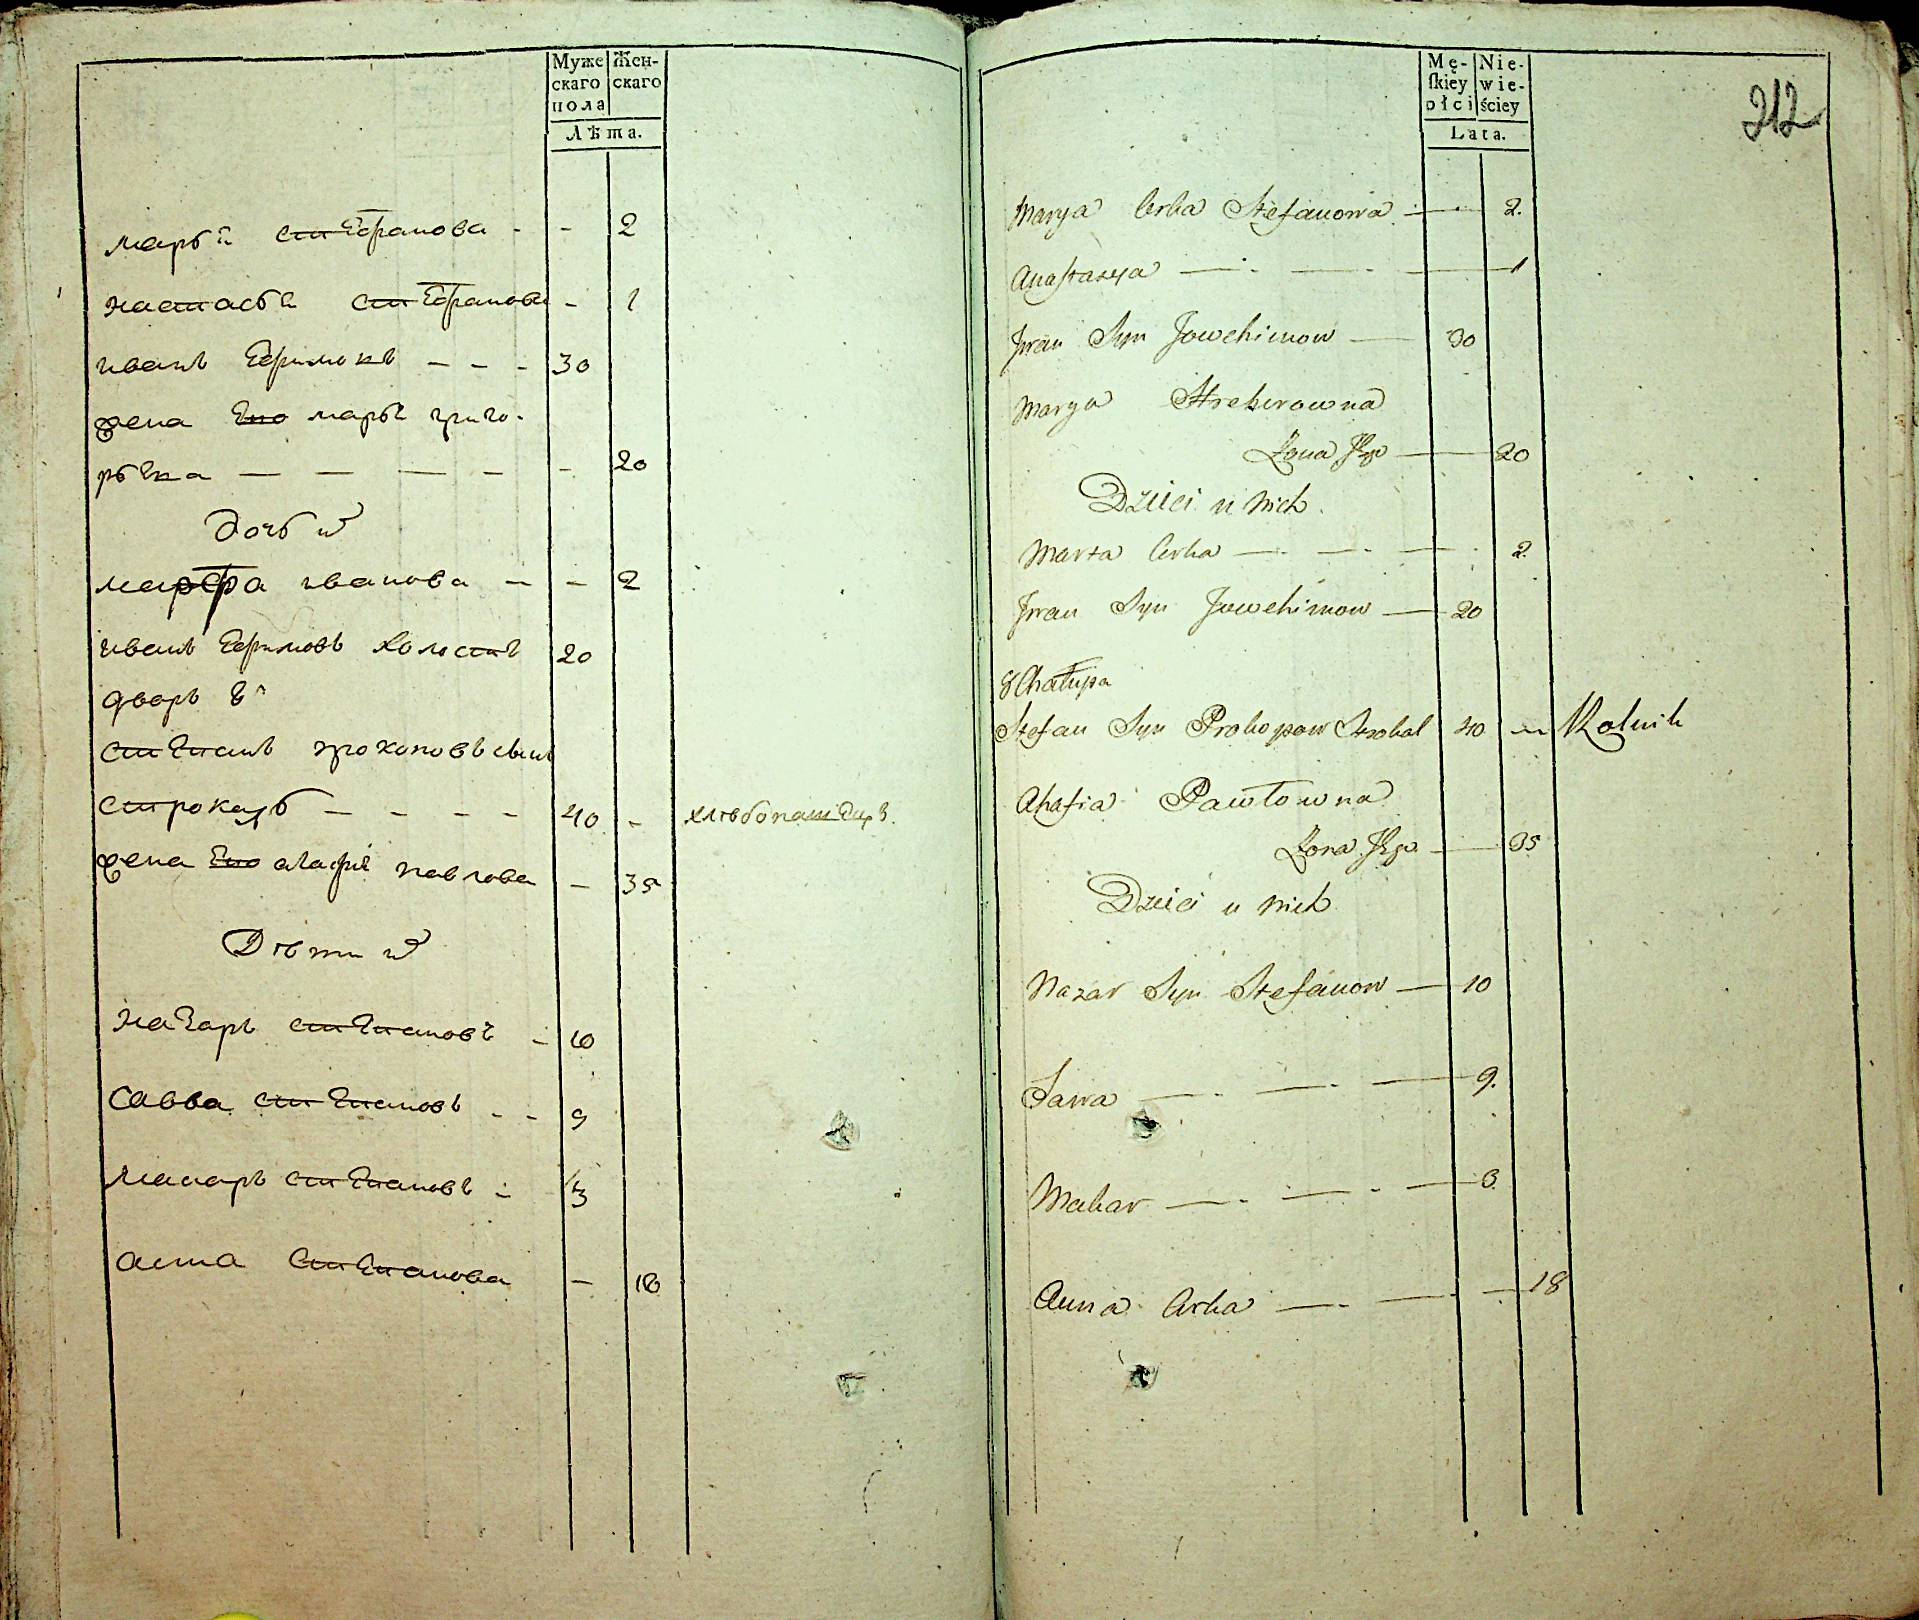 Муже
скаго
пола
Жен-
скаго
Лѣта.
марья стефанова - - 2
настася стефанова - 1
иванъ Ефимовъ - - - 30
жена Его маря григо-
рьева — — — — - 20
Дочь их
марфа иванова — - 2
иванъ Ефимовъ холостъ 20
дворъ 8
степанъ прокоповъ сынъ
строкаль — - - - 40 - хлѣбопашецъ
жена Его агафия павлова — 35
Дѣти их
Назаръ степановъ - 10
савва степановъ - - 9
макаръ степановъ - 3
анна степанова — 18
Mę-
skiey
płci
Nie-
wie-
ściey
Lata.
212
Marya Corka Stefanowa — 2.
Anastasya — — — 1
Jwan Syn Jowchimow — 30
Marya Hrehorowna
Zona Jego — 20
Dzieci u nich
Marta Corka — — — 2
Jwan Syn Jowchimow — 20
8 Chałupa
Stefan Syn Prokopow Strokal 40 — Rolnik
Ahafia Pawłowna
Zona Jego — 35
Dzieci u nich
Nazar Syn Stefanow — 10
Sawa — — — 9.
Makar — — — 3.
Anna Corka — — — 18